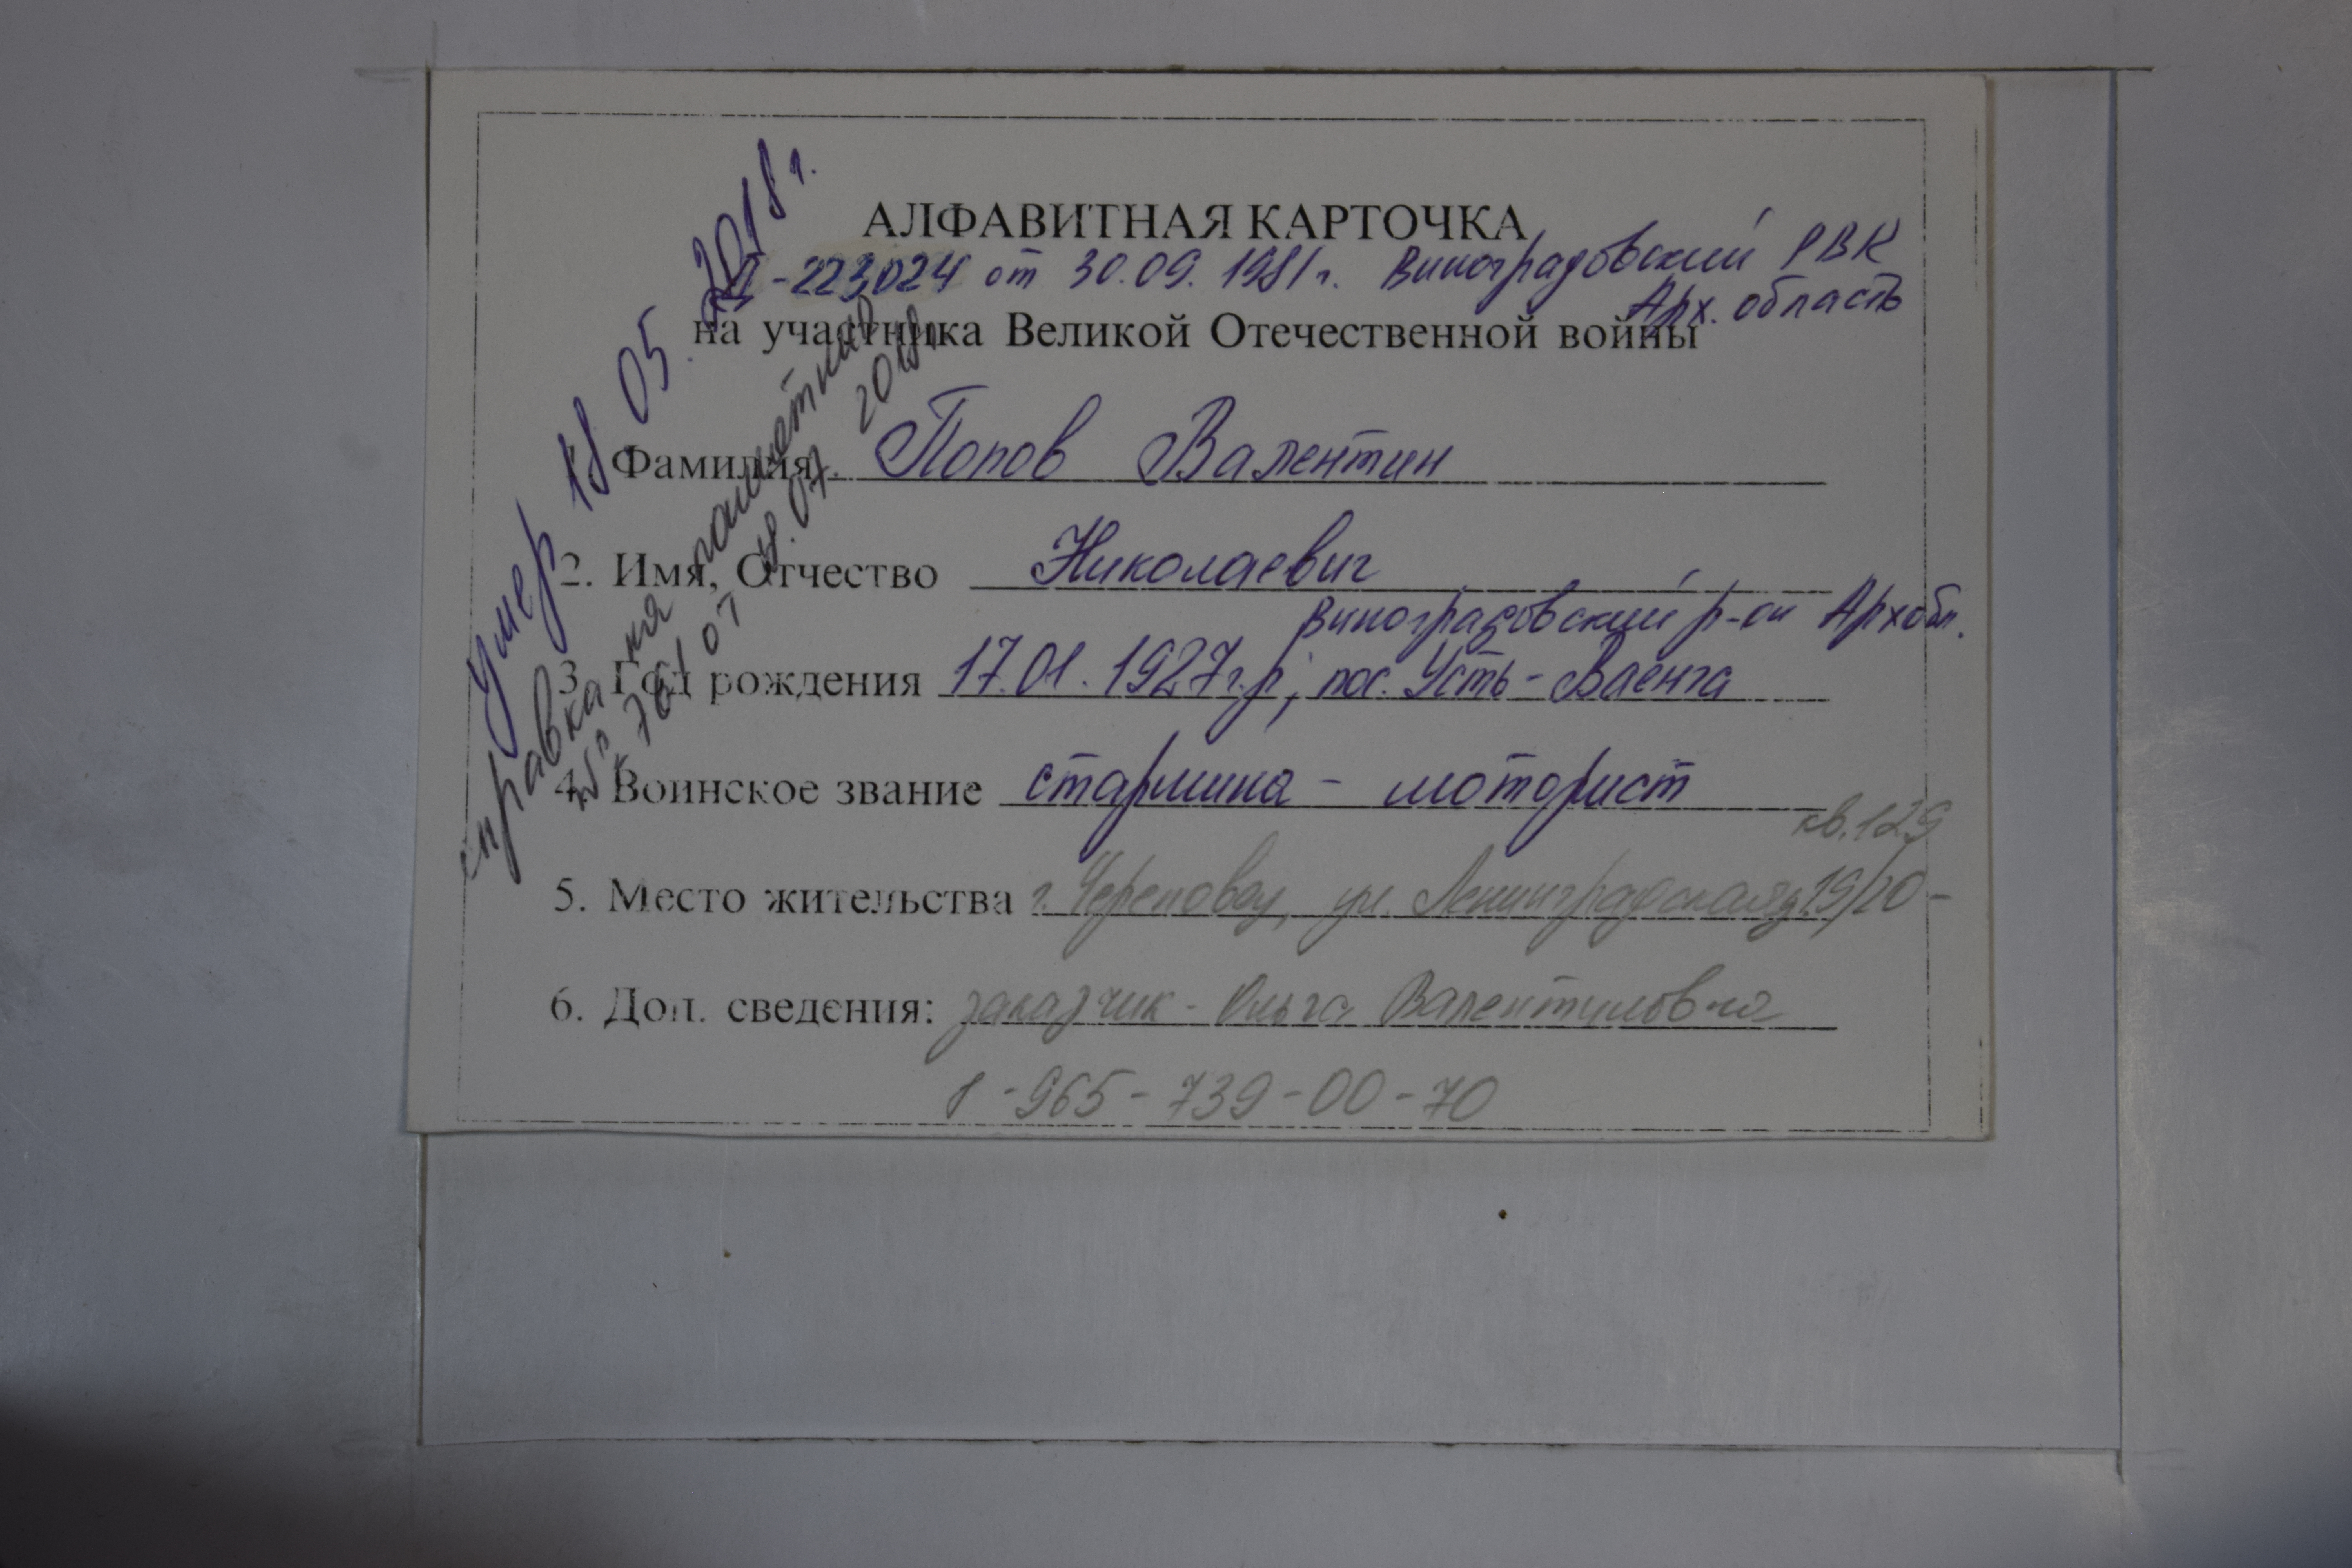 АЛФАВИТНАЯ КАРТОЧКА
Д-223024 от 30.09.1981г. Виноградовский РВК
Арх. область
на участника Великой Отечественной войны
Фамилия Попов Валентин
2. Имя, Отчество Николаевич
Виноградовский р-он Архобл.
3. Год рождения 17.01.1927г.р, пос. Усть-Ваенга
4. Воинское звание старшина - моторист
кв. 129
5. Место жительства г. Череповец, ул. Ленинградская, 19/20 -
6. Доп. сведения: заказчик - Ольга Валентиновна
8-965-739-00-70
Умер 18 05. 2018г.
справка на памятник
761 от 18.07 2018г.